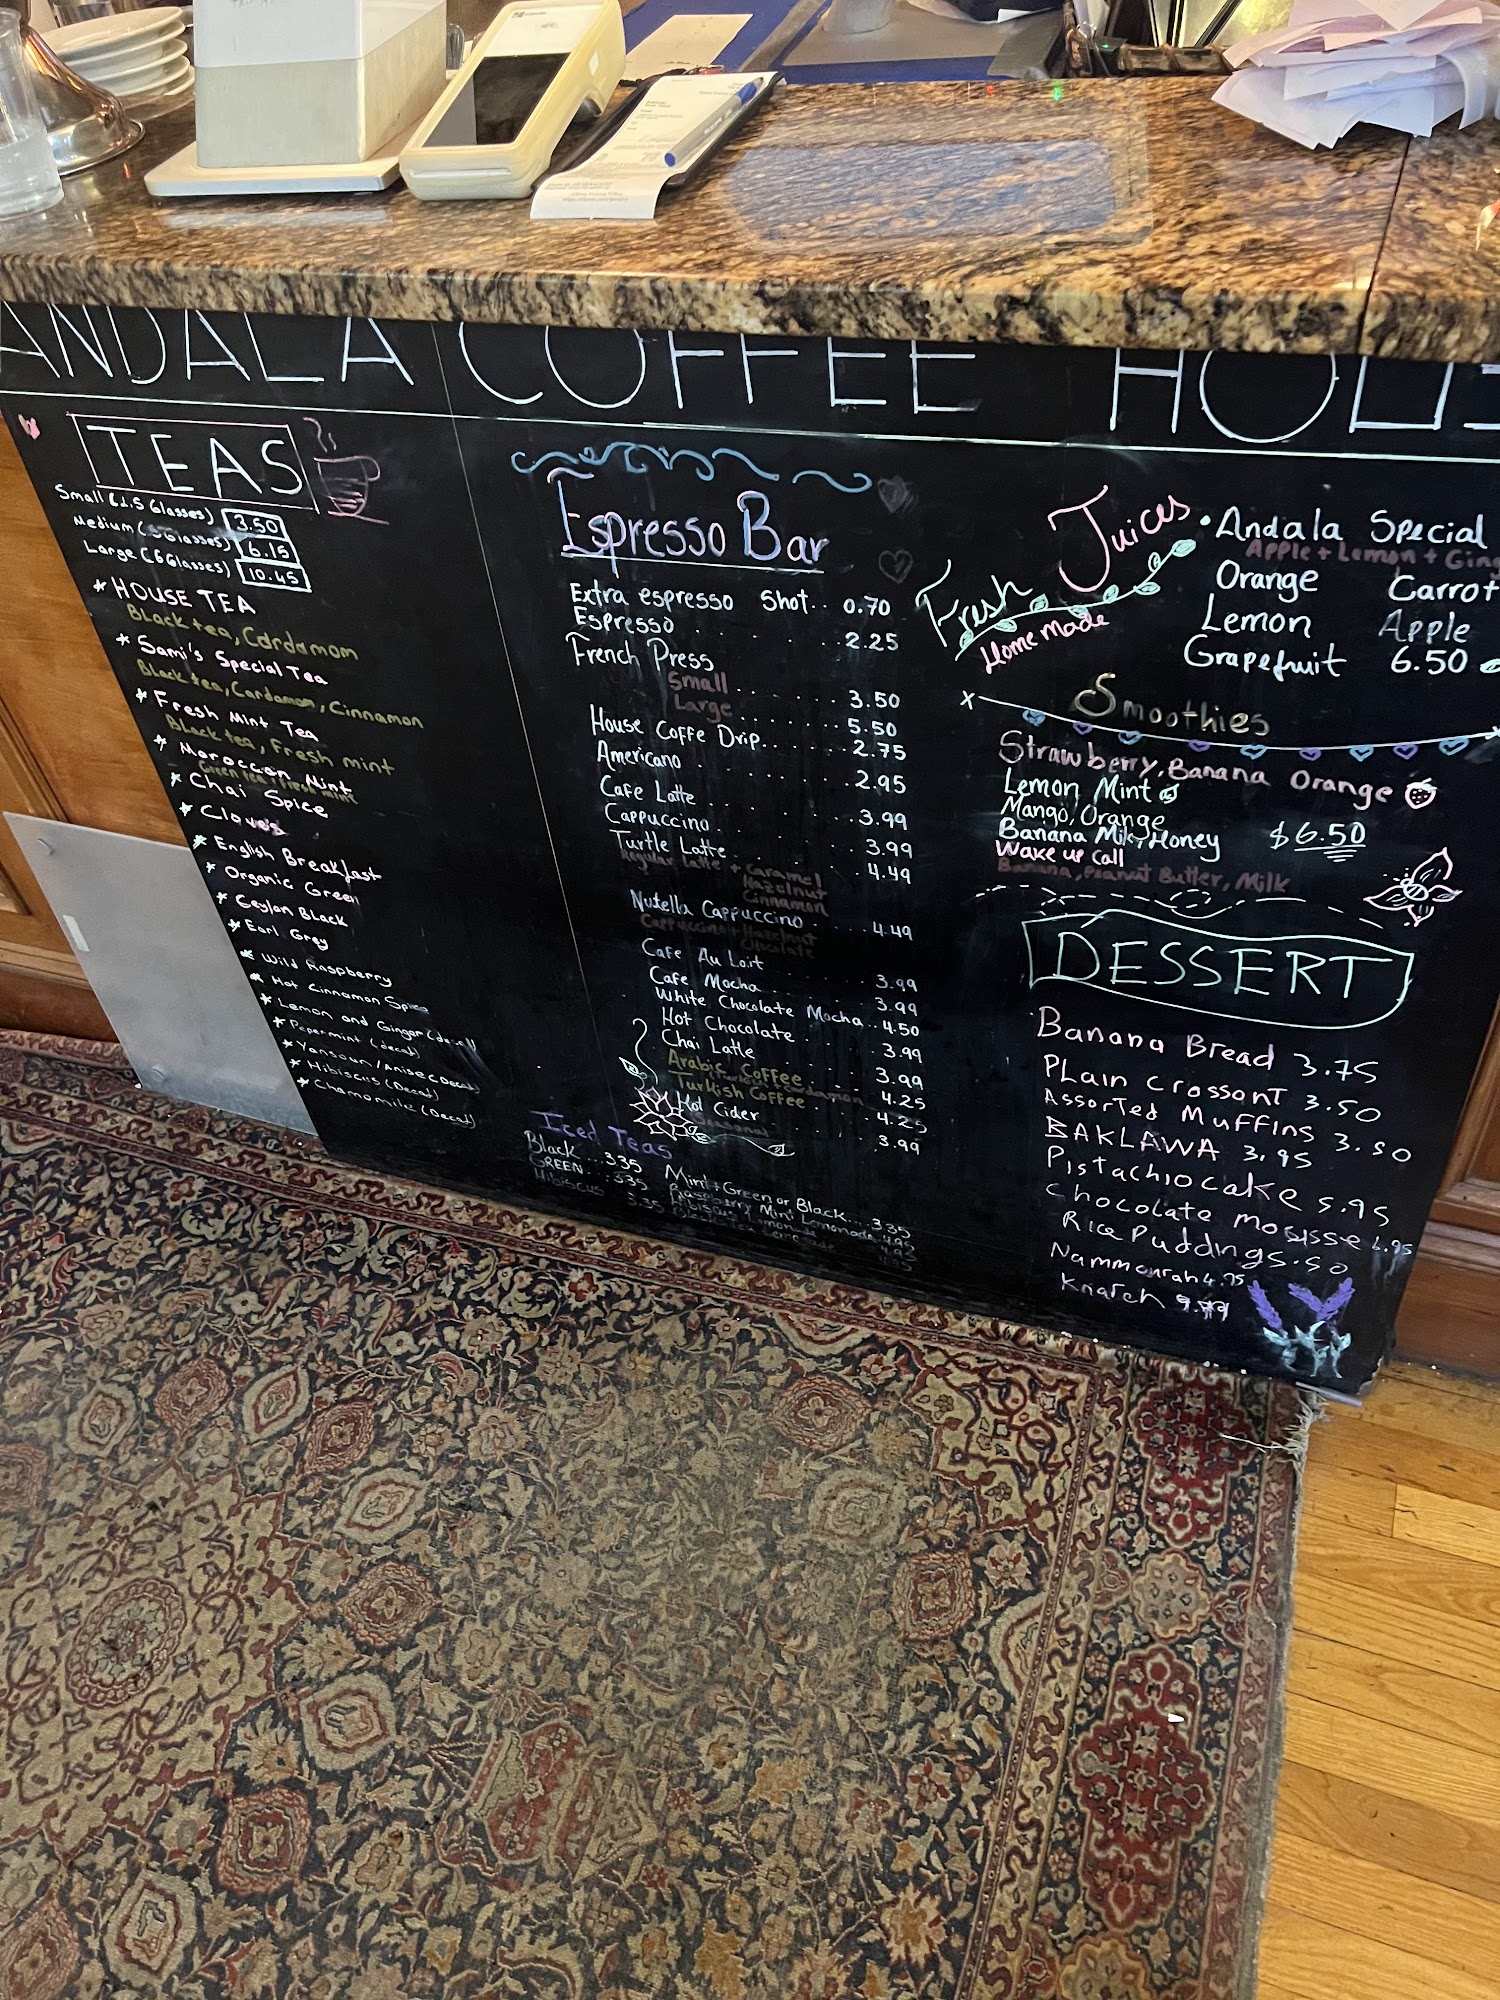 ANDALA COFFEE HOUS
TEAS
Small (1.5 Glasses) 3.50
Medium (3 Glasses) 6.15
Large (6 Glasses) 10.45
* HOUSE TEA
Black tea, Cardamom
* Sami's Special Tea
Black tea, Cardamon, Cinnamon
* Fresh Mint Tea
Black tea, Fresh mint
* Moroccan Mint
Green tea + fresh mint
* Chai Spice
* Cloves
* English Breakfast
* Organic Green
* Ceylon Black
* Earl Grey
* Wild Raspberry
* Hot Cinnamon Spice
* Lemon and Ginger (decaf)
* Pepermint (decaf)
* Yansoun/Anise (Decaf)
* Hibiscus (Decaf)
* Chamomile (Decaf)
Espresso Bar
Extra espresso Shot.. 0.70
Espresso . . . . . . 2.25
French Press
Small . . . . . . 3.50
Large . . . . . . 5.50
House Coffe Drip . . . . 2.75
Americano . . . . . . 2.95
Cafe Latte . . . . . . 3.99
Cappuccino . . . . . . 3.99
Turtle Latte . . . . . . 4.49
Regular latte + Caramel
Hazelnut
Cinnamon
Nutella Cappuccino . . . . 4.49
Cappuccino + Hazelnut
Chocolate
Cafe Au Lait . . . . . 3.99
Cafe Mocha . . . . . 3.99
White Chocolate Mocha.. 4.50
Hot Chocolate . . . . 3.99
Chai Latte . . . . . 3.99
Arabic Coffee . . . . 4.25
Turkish Coffee . . . . 4.25
Hot Cider . . . . 3.99
Seasonal
Iced Teas
Black ... 3.35
GREEN ... 3.35
Hibiscus 3.35
Mint + Green or Black... 3.35
Raspberry Mint Lemonade 4.95
Hibiscus Lemonade 4.95
4.95
Fresh Juices
Home Made
• Andala Special
Apple + Lemon + Ging
Orange Carrot
Lemon Apple
Grapefruit 6.50
Smoothies
Strawberry, Banana Orange
Lemon Mint
Mango, Orange
Banana Milk, Honey $6.50
Wake up Call
Banana, Peanut Butter, Milk
DESSERT
Banana Bread 3.75
PLain Crossant 3.50
Assorted Muffins 3.50
BAKLAWA 3.95
Pistachio cake 5.95
Chocolate mosisse 6.95
Rice Puddings 5.50
Nammourah 4.95
Knafeh